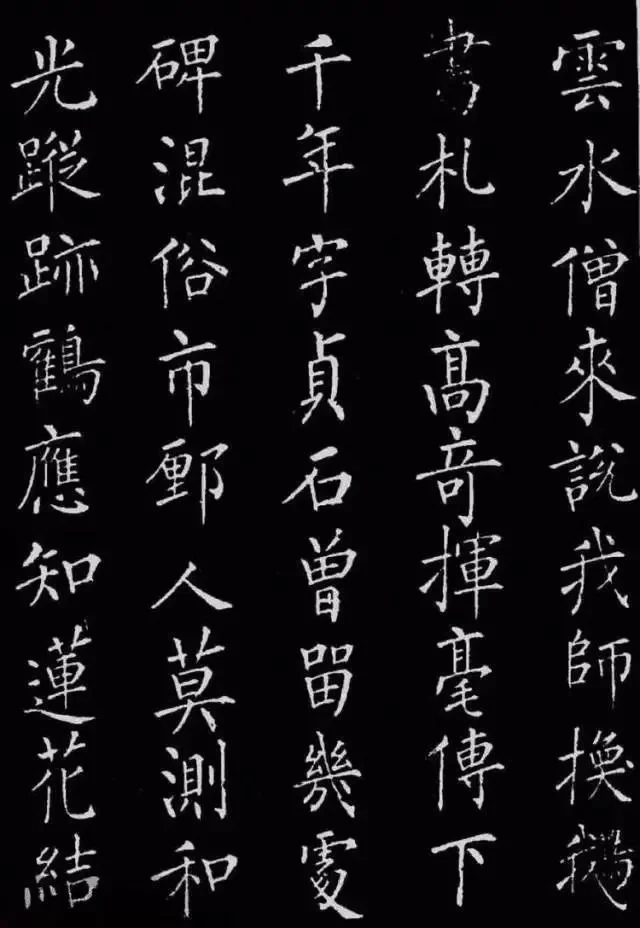 雲水僧來說我師換鵝
書札轉高竒揮毫傳下
千年字貞石曾留幾處
碑混俗市郵人莫測和
光蹤跡鶴應知蓮花結